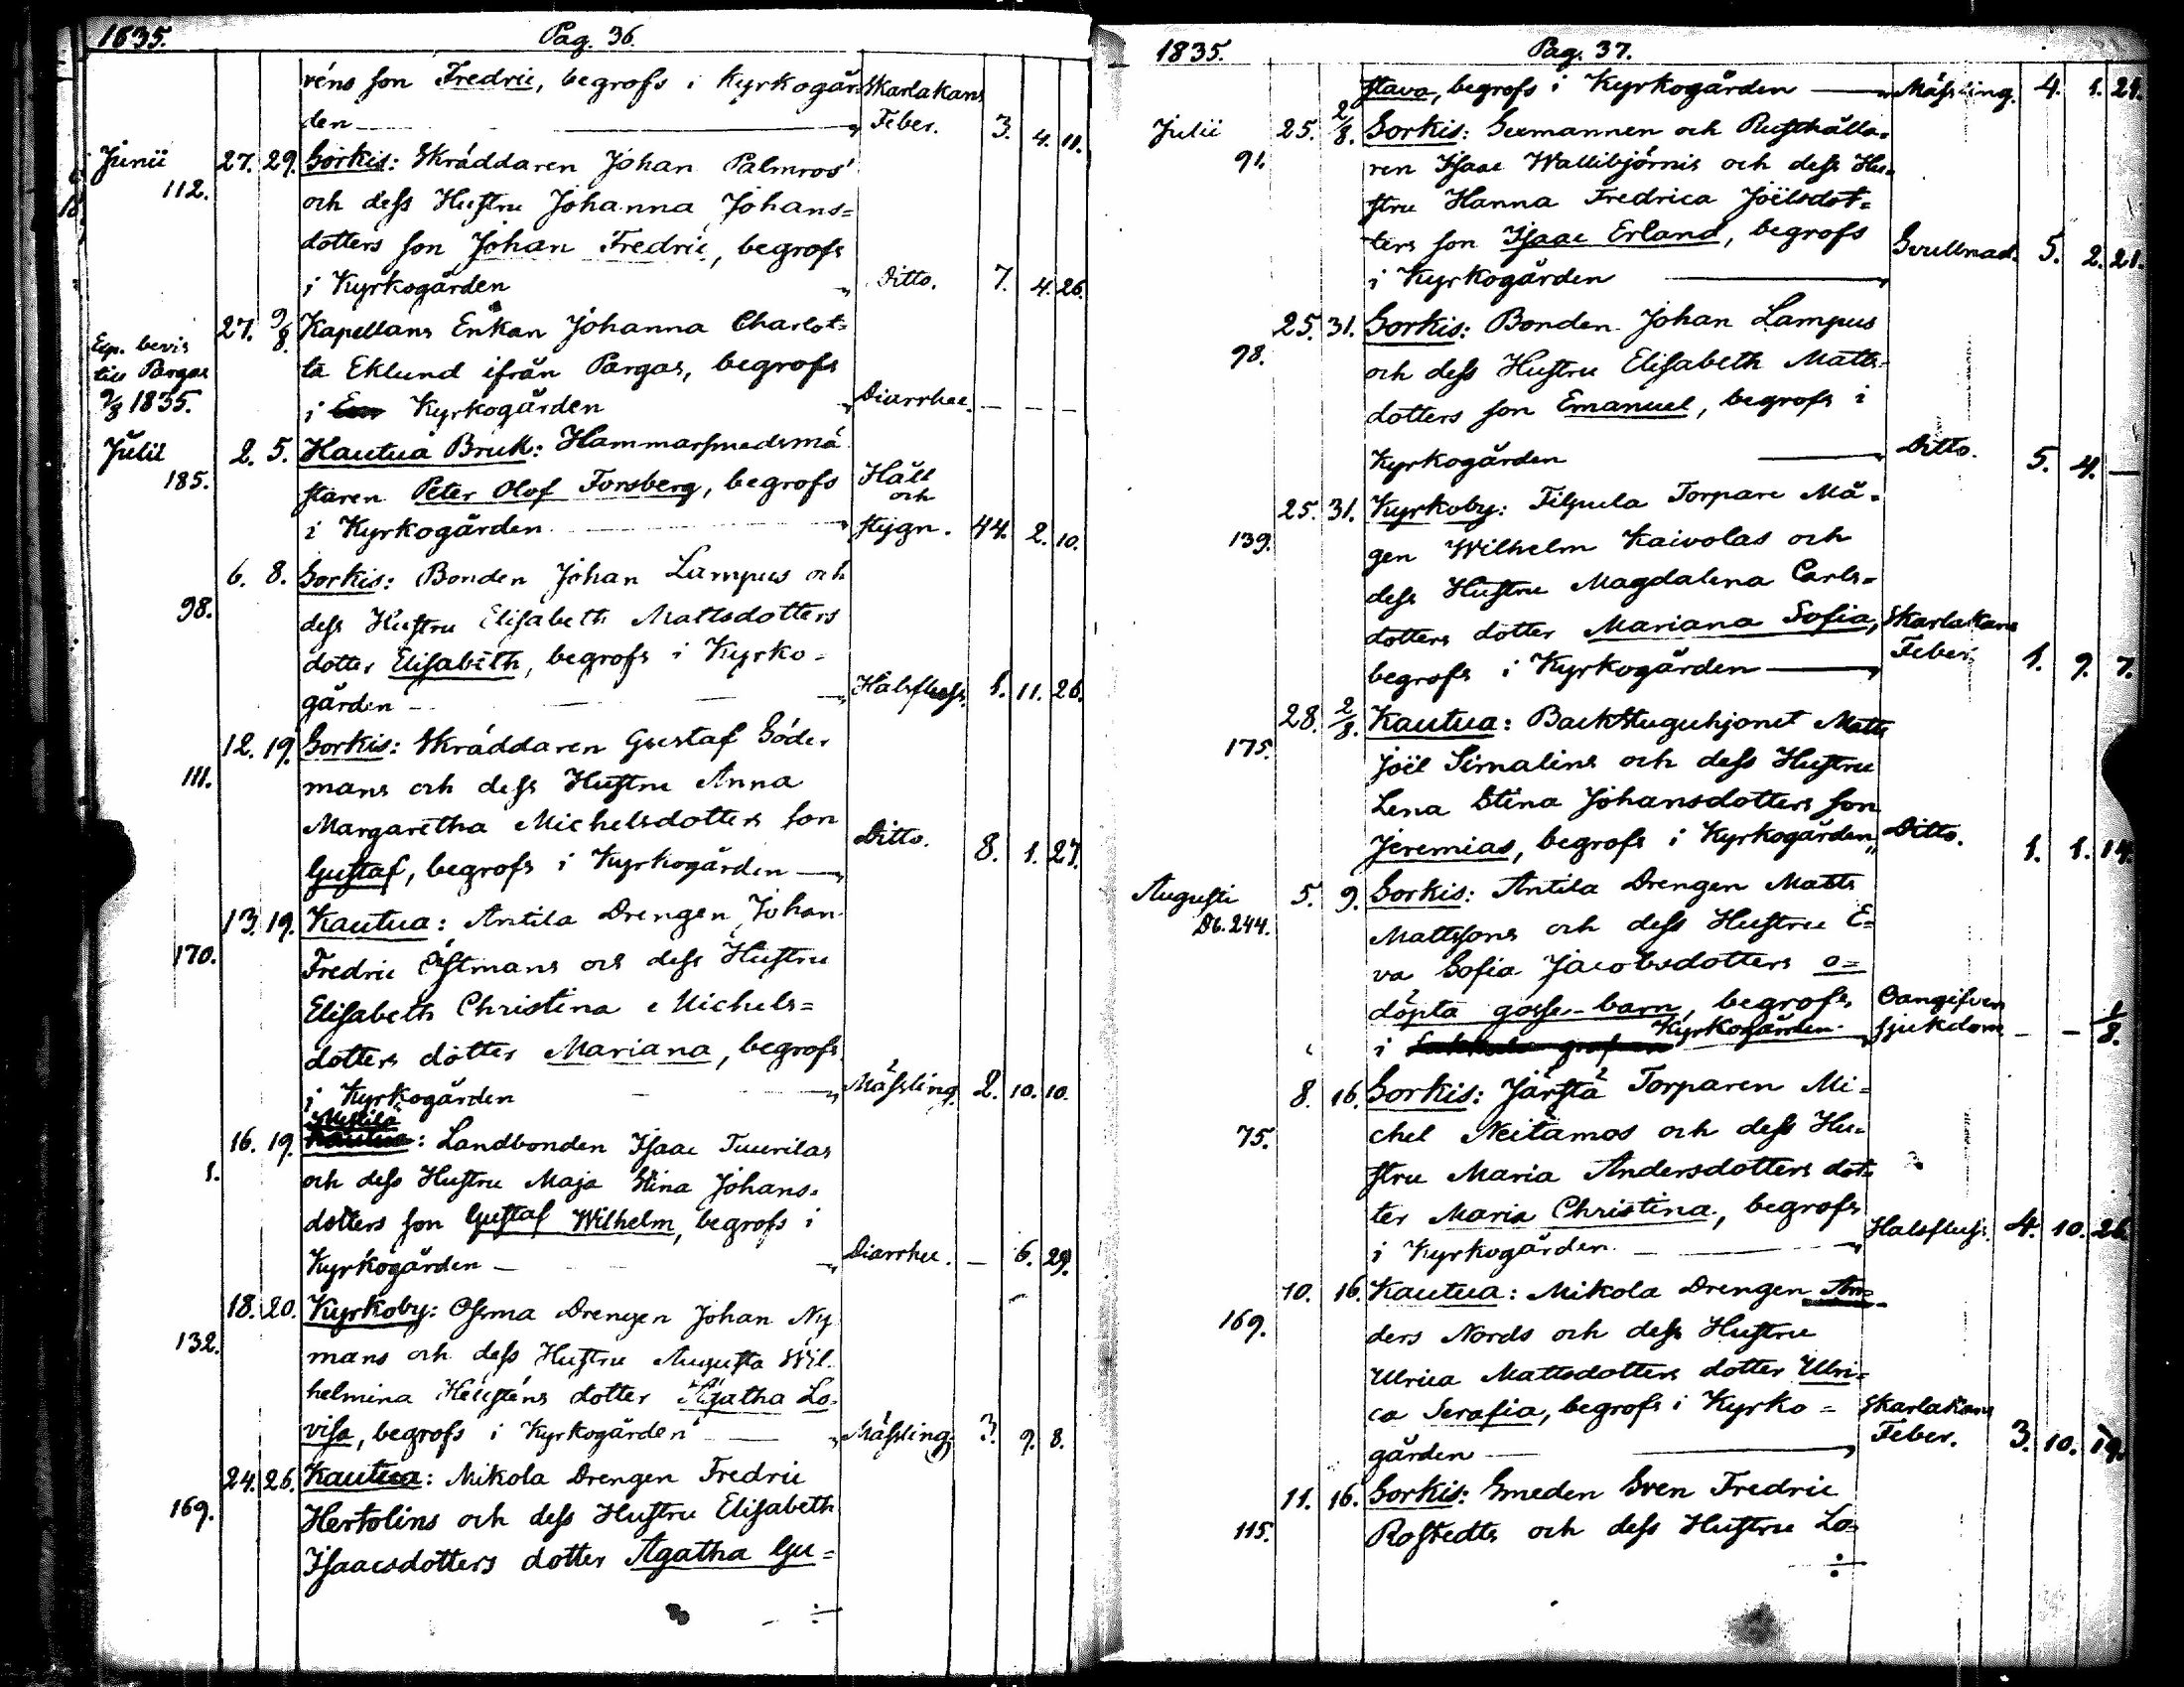 1835. Pag. 36.
réns son Fredric, begrofs i Kyrkogår- Skarlakans
den Feber. 3. 4. 11.
Junii 27. 29. Sorkis: Skräddaren Johan Palmros
112. och dess Hustru Johanna Johans=
dotters son Johan Fredric, begrofs
i Kyrkogården Ditto. 7. 4. 26.
27. 9/8. Kapellans Enkan Johanna Charlot=
Exp. bevis
till Pargas ta Eklund ifrån Pargas, begrofs
9/8 1835. i Kyrkogården Diarrhee. — — —
Julii 2. 5. Kautua Bruk: Hammarsmedsmä
185. staren Peter Olof Forsberg, begrofs Håll
och
i Kyrkogården stygn. 44. 2. 10.
6. 8. Sorkis: Bonden Johan Lampus och
98. dess Hustru Elisabeth Mattsdotters
dotter Elisabeth, begrofs i Kyrko=
gården Halsfluss. 1. 11. 26.
12. 19. Sorkis: Skräddaren Gustaf Söder
111. mans och dess Hustru Anna
Margaretha Michelsdotters son
Gustaf, begrofs i Kyrkogården Ditto. 8. 1. 27.
13. 19. Kautua: Antila Drengen Johan
170. Fredric Östmans och dess Hustru
Elisabeth Christina Michels=
dotters dotter Mariana, begrofs
i Kyrkogården Mässling. 2. 10. 10.
16. 19. : Landbonden Isaac Tuurilas
1. och dess Hustru Maja Stina Johans=
dotters son Gustaf Wilhelm, begrofs i
Kyrkogården Diarrhee. — 6. 29.
18. 20. Kyrkoby: Drengen Johan Ny
132. mans och dess Hustru Augusta Wil=
helmina dotter Agatha Lo=
visa, begrofs i Kyrkogården Mässling. 3. 9. 8.
24. 26. Kautua: Mikola Drengen Fredric
169. Hertolins och dess Hustru Elisabeth
Isaacsdotters dotter Agatha Gu=
1835. Pag. 37.
stava, begrofs i Kyrkogården Mässling. 4. 1. 21.
Julii 25. 2/8. Sorkis: Sexmannen och Rusthålla=
91. ren Isaac Wallibjörnis och dess Hu=
stru Hanna Fredrica Joëlsdot=
ters son Isaac Erland, begrofs
i Kyrkogården Svullnad. 5. 2. 21.
25. 31. Sorkis: Bonden Johan Lampus
98. och dess Hustru Elisabeth Matts=
dotters son Emanuel, begrofs i
Kyrkogården Ditto. 5. 4. —
25. 31. Kyrkoby: Filpula Torpare Må=
139. gen Wilhelm Kaivolas och
dess Hustru Magdalena Carls=
dotters dotter Mariana Sofia, Skarlakans
begrofs i Kyrkogården Feber. 1. 9. 7.
28. 2/8. Kautua: Backstuguhjonet Matts
175. Joël Simalins och dess Hustru
Lena Stina Johansdotters son
Jeremias, begrofs i Kyrkogården Ditto. 1. 1. 14.
Augusti 5. 9. Sorkis: Antila Drengen Matts
Db. 244. Mattssons och dess Hustru E=
va Sofia Jacobsdotters o=
döpta gosse-barn, begrofs Oangifven
i Kyrkogården sjukdom — — 1/8.
8. 16. Sorkis: Järstä Torparen Mi=
75. chel Neitamos och dess Hu=
stru Maria Andersdotters dot=
ter Maria Christina, begrofs
i Kyrkogården Halsfluss. 4. 10. 26.
10. 16. Kautua: Mikola Drengen An=
169. ders Nords och dess Hustru
Ulrica Mattsdotters dotter Ulri=
ca Serafia, begrofs i Kyrko= Skarlakans
gården Feber. 3. 10. 19.
11. 16. Sorkis: Smeden Sven Fredric
115. Rostedts och dess Hustru Lo=